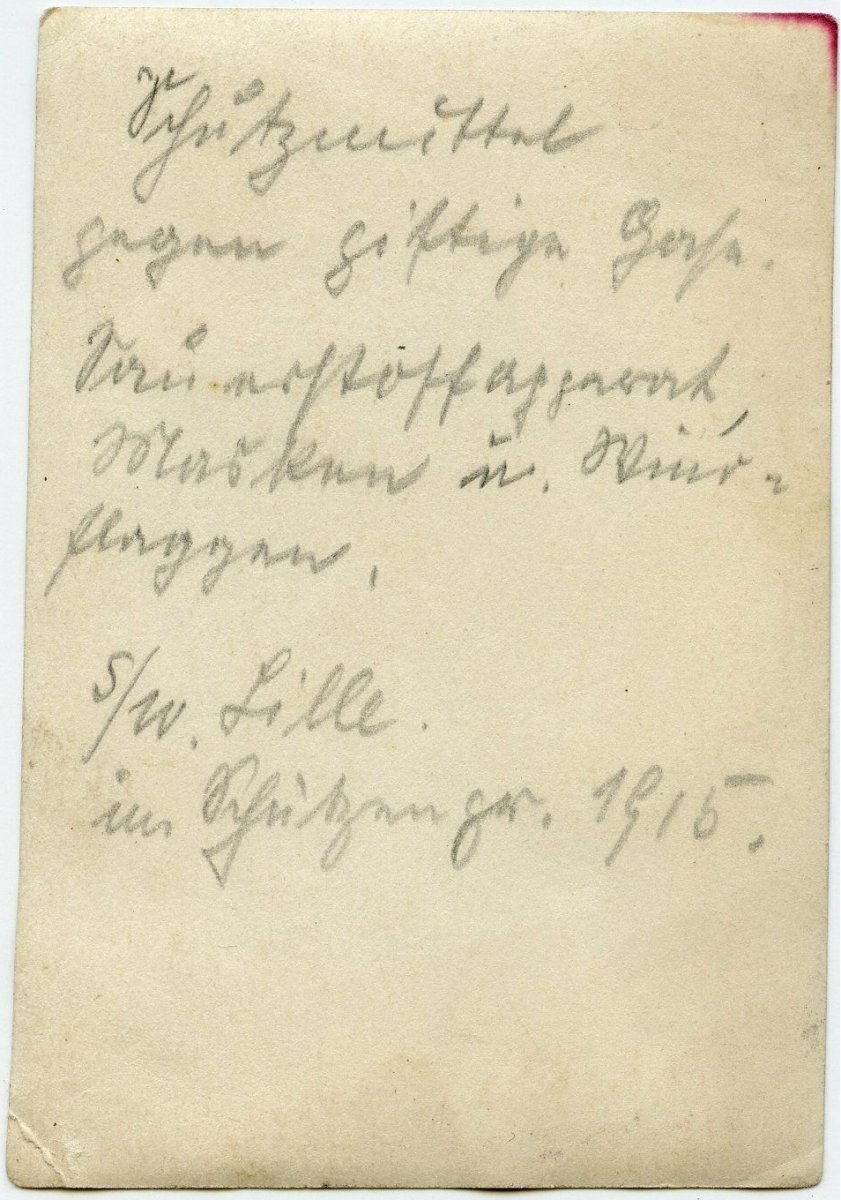 Schutzmittel
gegen giftige Gase.
Sauerstoffapparat,
Masken u. Wind-
flaggen.
s/w. Lille.
im Schützengr. 1915.